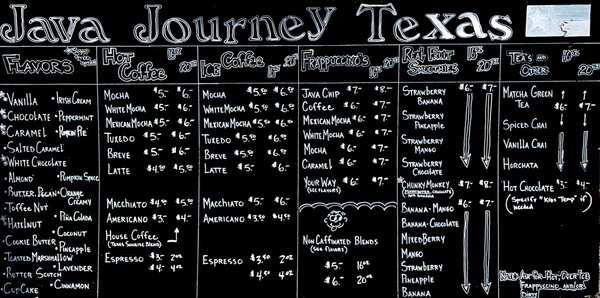 Java Journey Texas
Flavors
Vanilla • Irish Cream
Chocolate • Peppermint
Caramel • Pumpkin Pie
• Salted Caramel
White Chocolate
• Almond • Pumpkin Spice
• Butter Pecan • Orange Creamy
Toffee Nut
Hazelnut • Piña Colada
• Coconut
• Cookie Butter • Pineapple
• Toasted Marshmallow
• Lavender
• Butter Scotch
• CupCake • Cinnamon
Hot Coffee 16oz 20oz
Mocha $5- $6-
White Mocha $5- $6-
Mexican Mocha $5- $6-
Tuxedo $5- $6-
Breve $5- $6-
Latte $4.50 $5.50
Macchiato $4.50 $5.50
Americano $3- $4-
House Coffee
(Texas Sunrise Blend)
Espresso $3- 2oz
$4- 4oz
Ice Coffee 16oz 20oz
Mocha $5.50 $6.50
White Mocha $5.50 $6.50
Mexican Mocha $5.50 $6.50
Tuxedo $5.50 $6.50
Breve $5.50 $6.50
Latte $5- $6-
Macchiato $5- $6-
Americano $3.50 $4.50
Espresso $3.50 2oz
$4.50 4oz
Frappuccino's 16oz 20oz
Java Chip $7- $8-
Coffee $6- $7-
Mexican Mocha $6- $7-
White Mocha $6- $7-
Mocha $6- $7-
Caramel $6- $7-
Your Way $6- $7-
(See Flavors)
Non Caffinated Blends
(See Flavors)
$5- 16oz
$6- 20oz
Real Fruit Smoothies 16oz 20oz
Strawberry Banana $6- $7-
Strawberry Pineapple
Strawberry Mango
Strawberry
Chunky Monkey $7- $8-
and Banana)
Banana-Mango $6- $7-
Banana-Chocolate
Mixed Berry
Mango
Strawberry
Pineapple
Banana
Tea's and Other 16oz 20oz
Matcha Green Tea $6- $7-
Spiced Chai
Vanilla Chai
Horchata
Hot Chocolate $3- $4-
(Specify "Kids Temp" if needed)
Note: Ask for Hot, Over Ice
Frappuccino and/or
Dirty